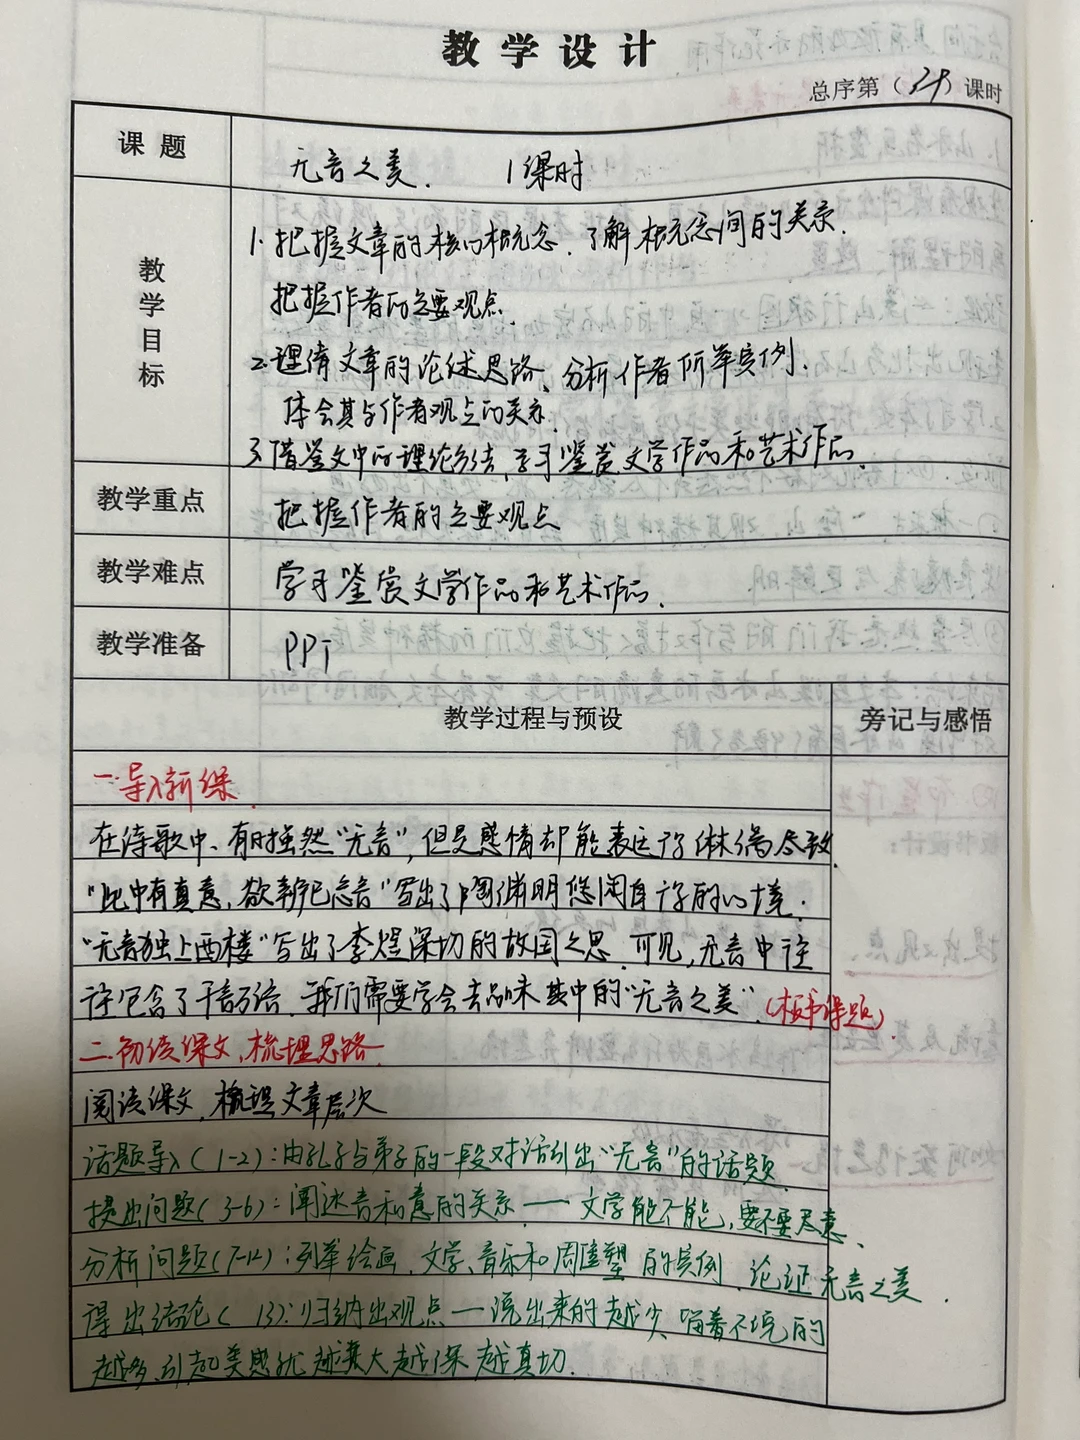 教学设计
总序第（29）课时
课题
无言之美. 1课时
教学目标
1.把握文章的核心概念、了解概念间的关系.
把握作者的主要观点.
2.理清文章的论述思路、分析作者所举实例.
体会其与作者观点的关系.
3.借鉴文中的理论方法,学习鉴赏文学作品和艺术作品.
教学重点
把握作者的主要观点
教学难点
学习鉴赏文学作品和艺术作品.
教学准备
PPT
教学过程与预设
旁记与感悟
一.导入新课.
在诗歌中、有时虽然“无言”,但是感情却能表达得淋漓尽致.
“此中有真意,欲辨已忘言”写出了陶渊明悠闲自得的心境.
“无言独上西楼”写出了李煜深切的故国之思.可见,无言中往
往包含了千言万语.我们需要学会去品味其中的“无言之美”.(板书课题)
二.初读课文,梳理思路.
阅读课文,梳理文章层次
话题导入(1-2):由孔子与弟子的一段对话引出“无言”的话题.
提出问题(3-6):阐述言和意的关系——文学能不能,要不要尽意.
分析问题(7-12):列举绘画、文学、音乐和雕塑的实例.论证无言之美.
得出结论(13):归纳出观点—说出来的越少,留着不说的
越多,引起美感就越大越深越真切.